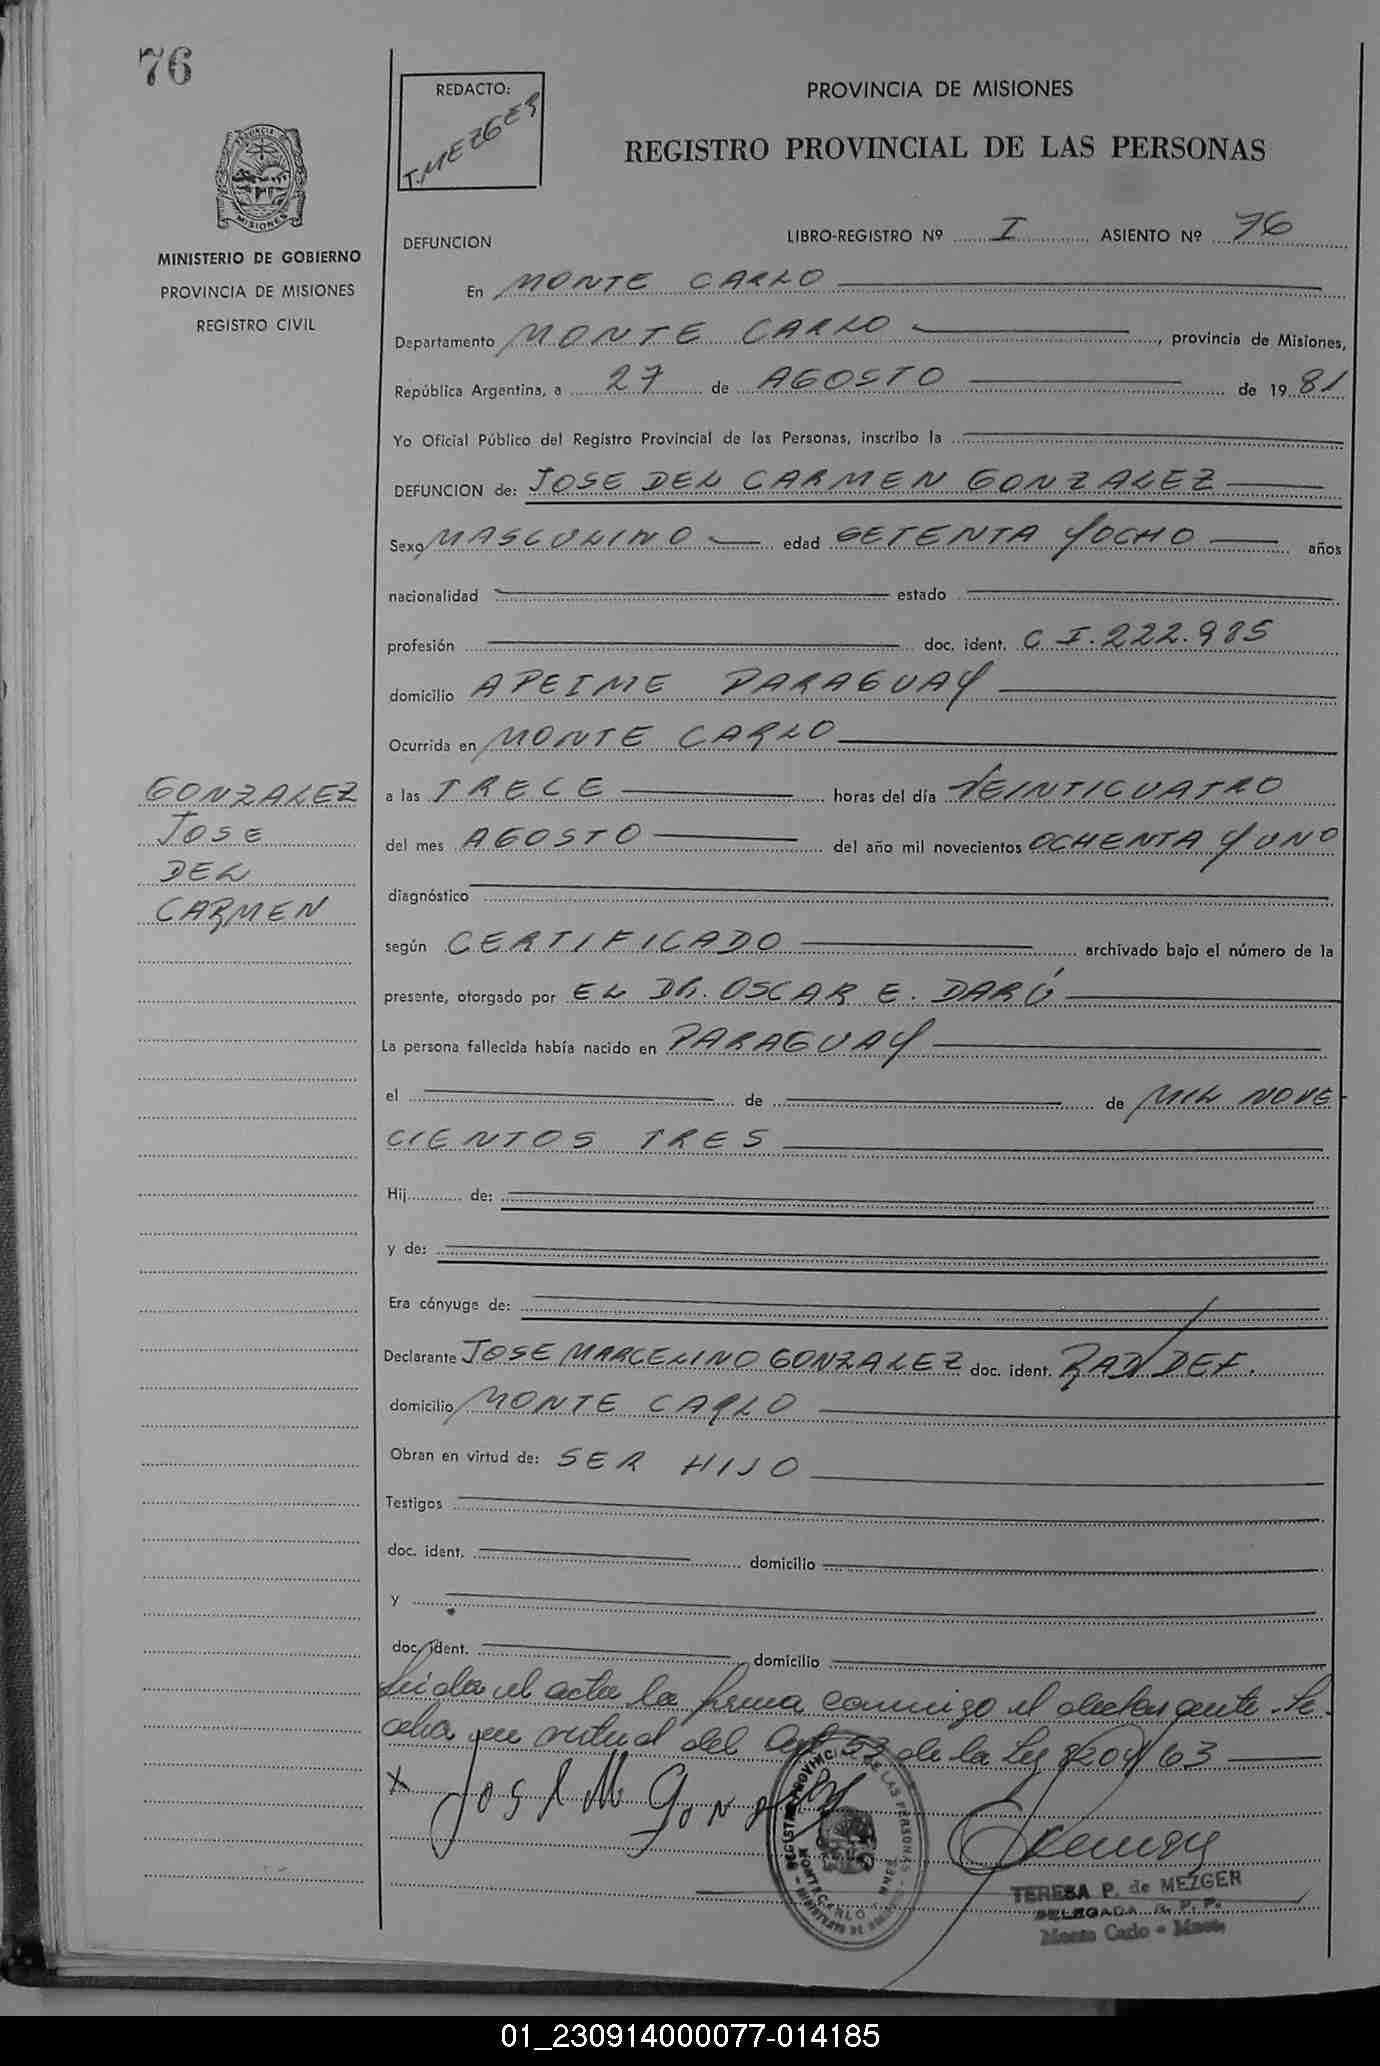 76
REDACTO:
T. MEZGER
PROVINCIA DE MISIONES
REGISTRO PROVINCIAL DE LAS PERSONAS
PROVINCIA DE
MISIONES
MINISTERIO DE GOBIERNO
PROVINCIA DE MISIONES
REGISTRO CIVIL
DEFUNCION
LIBRO-REGISTRO Nº I ASIENTO Nº 76
En MONTE CARLO
Departamento MONTE CARLO, provincia de Misiones,
República Argentina, a 27 de AGOSTO de 1981
Yo Oficial Público del Registro Provincial de las Personas, inscribo la
DEFUNCION de: JOSE DEL CARMEN GONZALEZ
Sexo MASCULINO edad SETENTA Y OCHO años
nacionalidad estado
profesión doc. ident. C I. 222.985
domicilio APEIME PARAGUAY
Ocurrida en MONTE CARLO
a las TRECE horas del día VEINTICUATRO
del mes AGOSTO del año mil novecientos OCHENTA Y UNO
diagnóstico
según CERTIFICADO archivado bajo el número de la
presente, otorgado por EL DR. OSCAR E. DARÚ
La persona fallecida había nacido en PARAGUAY
el de de MIL NOVE
CIENTOS TRES
Hij de:
y de:
Era cónyuge de:
Declarante JOSE MARCELINO GONZALEZ doc. ident.
domicilio MONTE CARLO
Obran en virtud de: SER HIJO
Testigos
doc. ident. domicilio
y
doc. ident. domicilio
Leida el acta la firma conmigo el declarante. Se
labra en virtud del Art 52 de la Ley 8204/63
x Jose M Gonzalez
GONZALEZ
JOSE
DEL
CARMEN
TERESA P. de MEZGER
DELEGADA R. P. P.
Monte Carlo - Mnes.
01_230914000077-014185